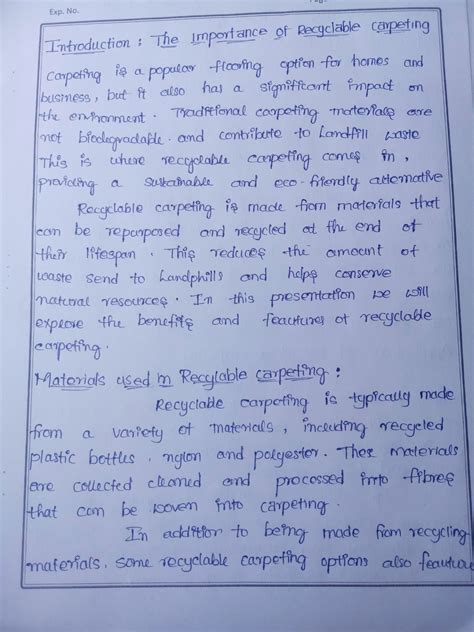 Exp. No.
Introduction : The importance of Recyclable carpeting
Carpeting is a popular flooring option for homes and
business, but it also has a significant impact on
the environment. Traditional carpeting materials are
not biodegradable. and contribute to Landfill waste
This is where recyclable carpeting comes in,
providing a sustainable and eco-friendly alternative
Recyclable carpeting is made from materials that
can be repurposed and recycled at the end of
their lifespan. This reduces the amount of
waste send to Landphills and helps conserve
natural resources. In this presentation we will
expeore the benefits and feactures of recyclable
carpeting.
Materials used in Recylable carpeting :
Recyclable carpeting is typically made
from a variety of materials, including recycled
plastic bottles, nylon and polyester. Thes materials
are collected cleaned and processed into fibres
that can be woven into carpeting.
In addition to being made from recycling
materials, some recyclable carpeting options also